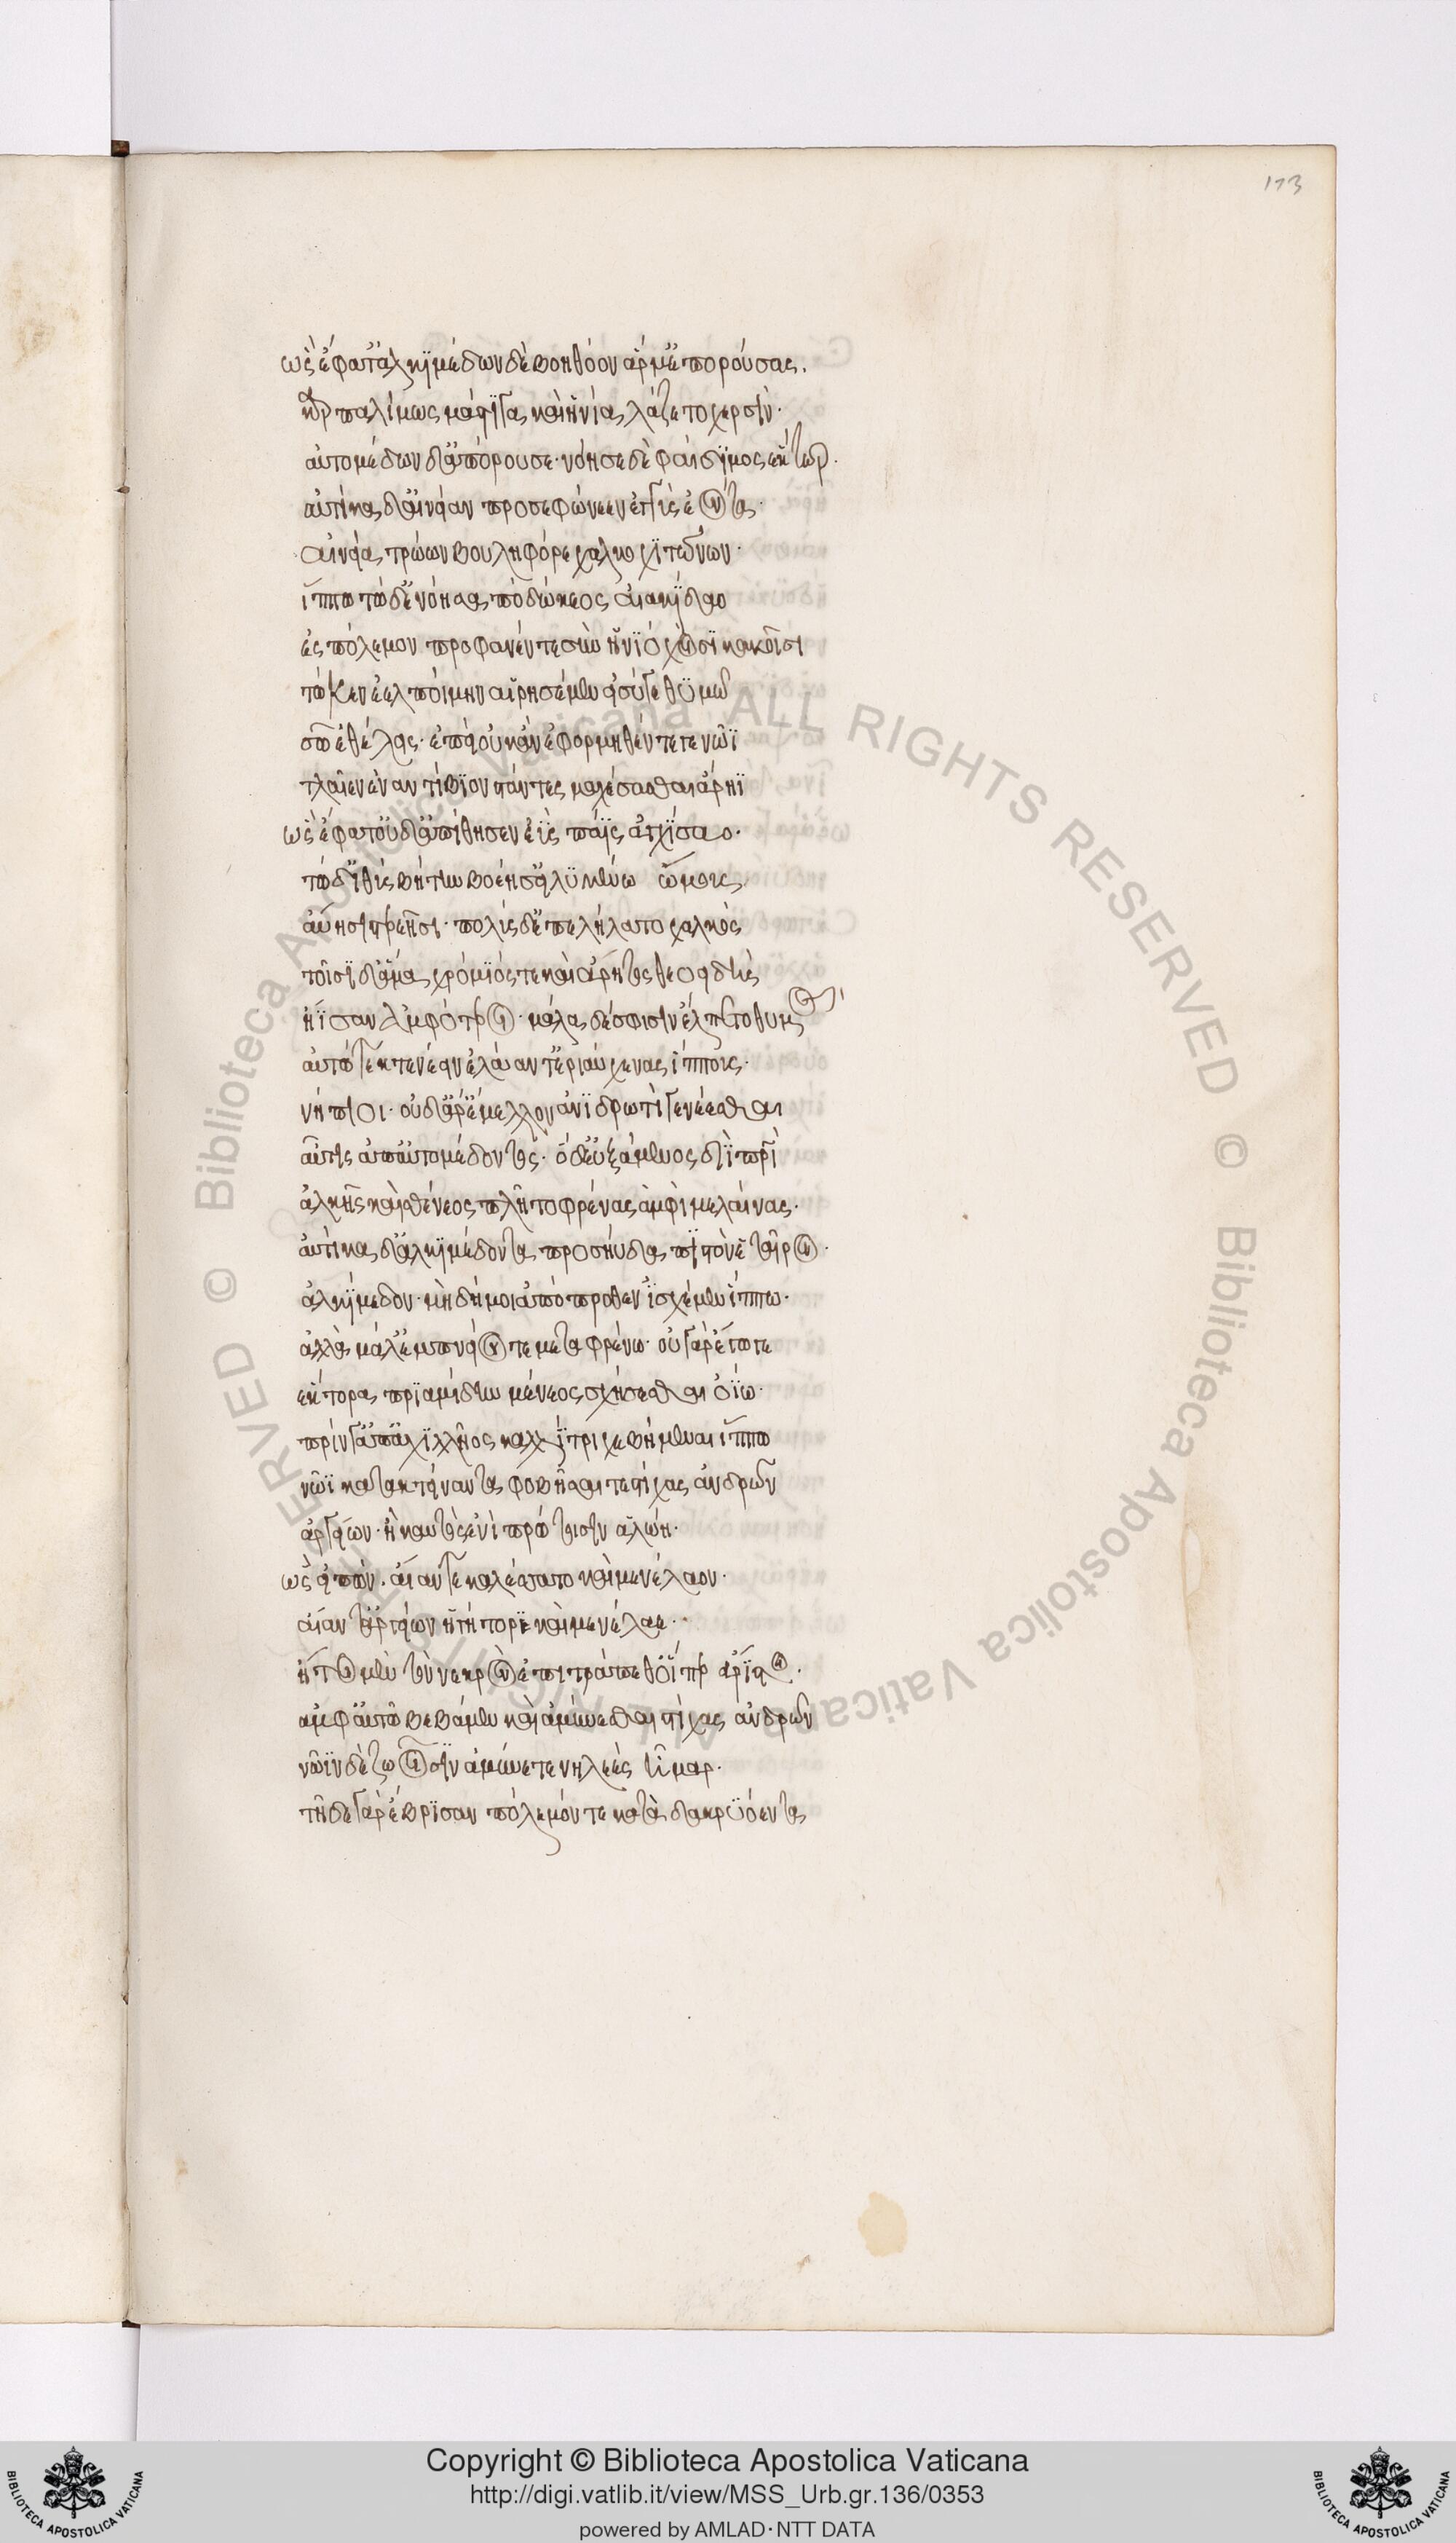 173
ὡς ἔφατ' ἀλκϊμέδων δὲ βοηθόον ἅρμ' ἐπορούσας.
καρπαλίμως μάστϊγα καὶ ἡνία λάζετο χερσὶν·
αὐτομέδων δ' ἀπόρουσε· νόησε δὲ φαίδϊμος ἕκτωρ.
αὐτίκα δ' αἰνείαν προσεφώνεεν ἐγγὺς ἐόντα·
αἰνεία τρώων βουληφόρε χαλκοχϊτώνων·
ἵππω τώδ' ἐνόησα ποδώκεος αἰακΐδαο
ἐς πόλεμον προφανέντε σὺν ἡνϊόχοισϊ κακοῖσι
τώ κεν ἐελποίμην αἱρησέμεν εἰ σύ γε θϋμῷ
σῷ ἐθέλεις· ἐπεὶ οὐκ ἂν ἐφορμηθέντέ γε νῶϊ
τλαῖεν ἐναντίβϊον πάντες καλέσασθαι ἄρηϊ
ὣς ἔφατ' οὐδ' ἀπίθησεν ἐῢς πάϊς ἀγχίσαο·
τὼ δ' ἰθὺς βήτην βοέησ' εἰλϋμένω ὤμοις
αὔησι στερεῇσι· πολὺς δ' ἐπελήλατο χαλκὸς
τοῖσϊ δ' ἅμα χρόμϊός τε καὶ ἄρητος θεοειδὴς
ἤϊσαν ἀμφότεροι· μάλα δέ σφισιν ἔλπετο θυμὸς
αὐτώ τε κτενέειν ἐλάαν τ' ἐριαύχενας ἵππους·
νήπιοι· οὐδ' ἄρ' ἔμελλον ἀνϊδρωτί γε νέεσθαι
αὖτις ἀπ' αὐτομέδοντος· ὁ δ' εὐξάμενος διῒ πατρὶ
ἀλκῆς καὶ σθένεος πλῆτο φρένας ἀμφὶ μελαίνας·
αὐτίκα δ' ἀλκϊμέδοντα προσηύδα πιστὸν ἑταῖρον·
ἀλκΐμεδον· μὴ δή μοι ἀπόπροθεν ἰσχέμεν ἵππω·
ἀλλὰ μάλ' ἐμπνείοντε μεταφρένω· οὐ γὰρ ἔγωγε
ἕκτορα πρϊαμίδην μένεος σχήσεσθαι ὀΐω·
πρίν γ' ἐπ' ἀχϊλλῆος καλλΐτριχε βήμεναι ἵππω
νῶϊ κατακτείναντα φοβῆσαι τε στίχας ἀνδρῶν
ἀργείων· ἤ κ' αὐτὸς ἐνὶ πρώτοισιν ἁλώη·
ὣς εἰπὼν· αἴαντε καλέσσατο καὶ μενέλαον·
αἴαντ' ἀργείων ἡγήτορε καὶ μενέλαε·
ἤτοι μὲν τὸν νεκρὸν ἐπιτράπεθ' οἵπερ ἄρϊστοι·
ἀμφ' αὐτῷ βεβάμεν καὶ ἀμύνεσθαι στίχας ἀνδρῶν
νῶϊν δὲ ζωοῖσϊν ἀμύνετε νηλεὲς ἦμαρ·
τῇδε γὰρ ἔβρϊσαν πόλεμόν τε κατὰ δακρϋόεντα
Copyright © Biblioteca Apostolica Vaticana
http://digi.vatlib.it/view/MSS_Urb.gr.136/0353
powered by AMLAD·NTT DATA